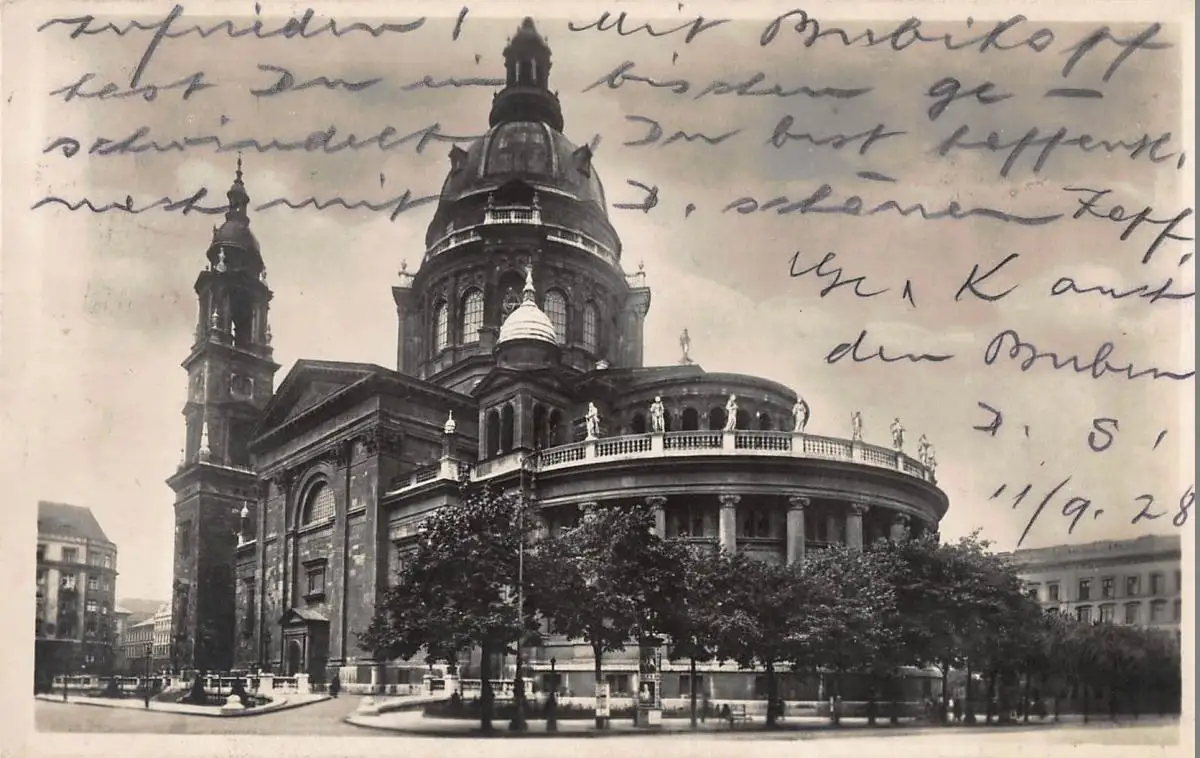 zufrieden! Mit Bubikopf
hast Du ein bischen ge-
schwindelt, Du bist hoffentl.
noch mit D. schönen Zopf.
Ge, Kanst
den Buben
D. S.
11/9.28